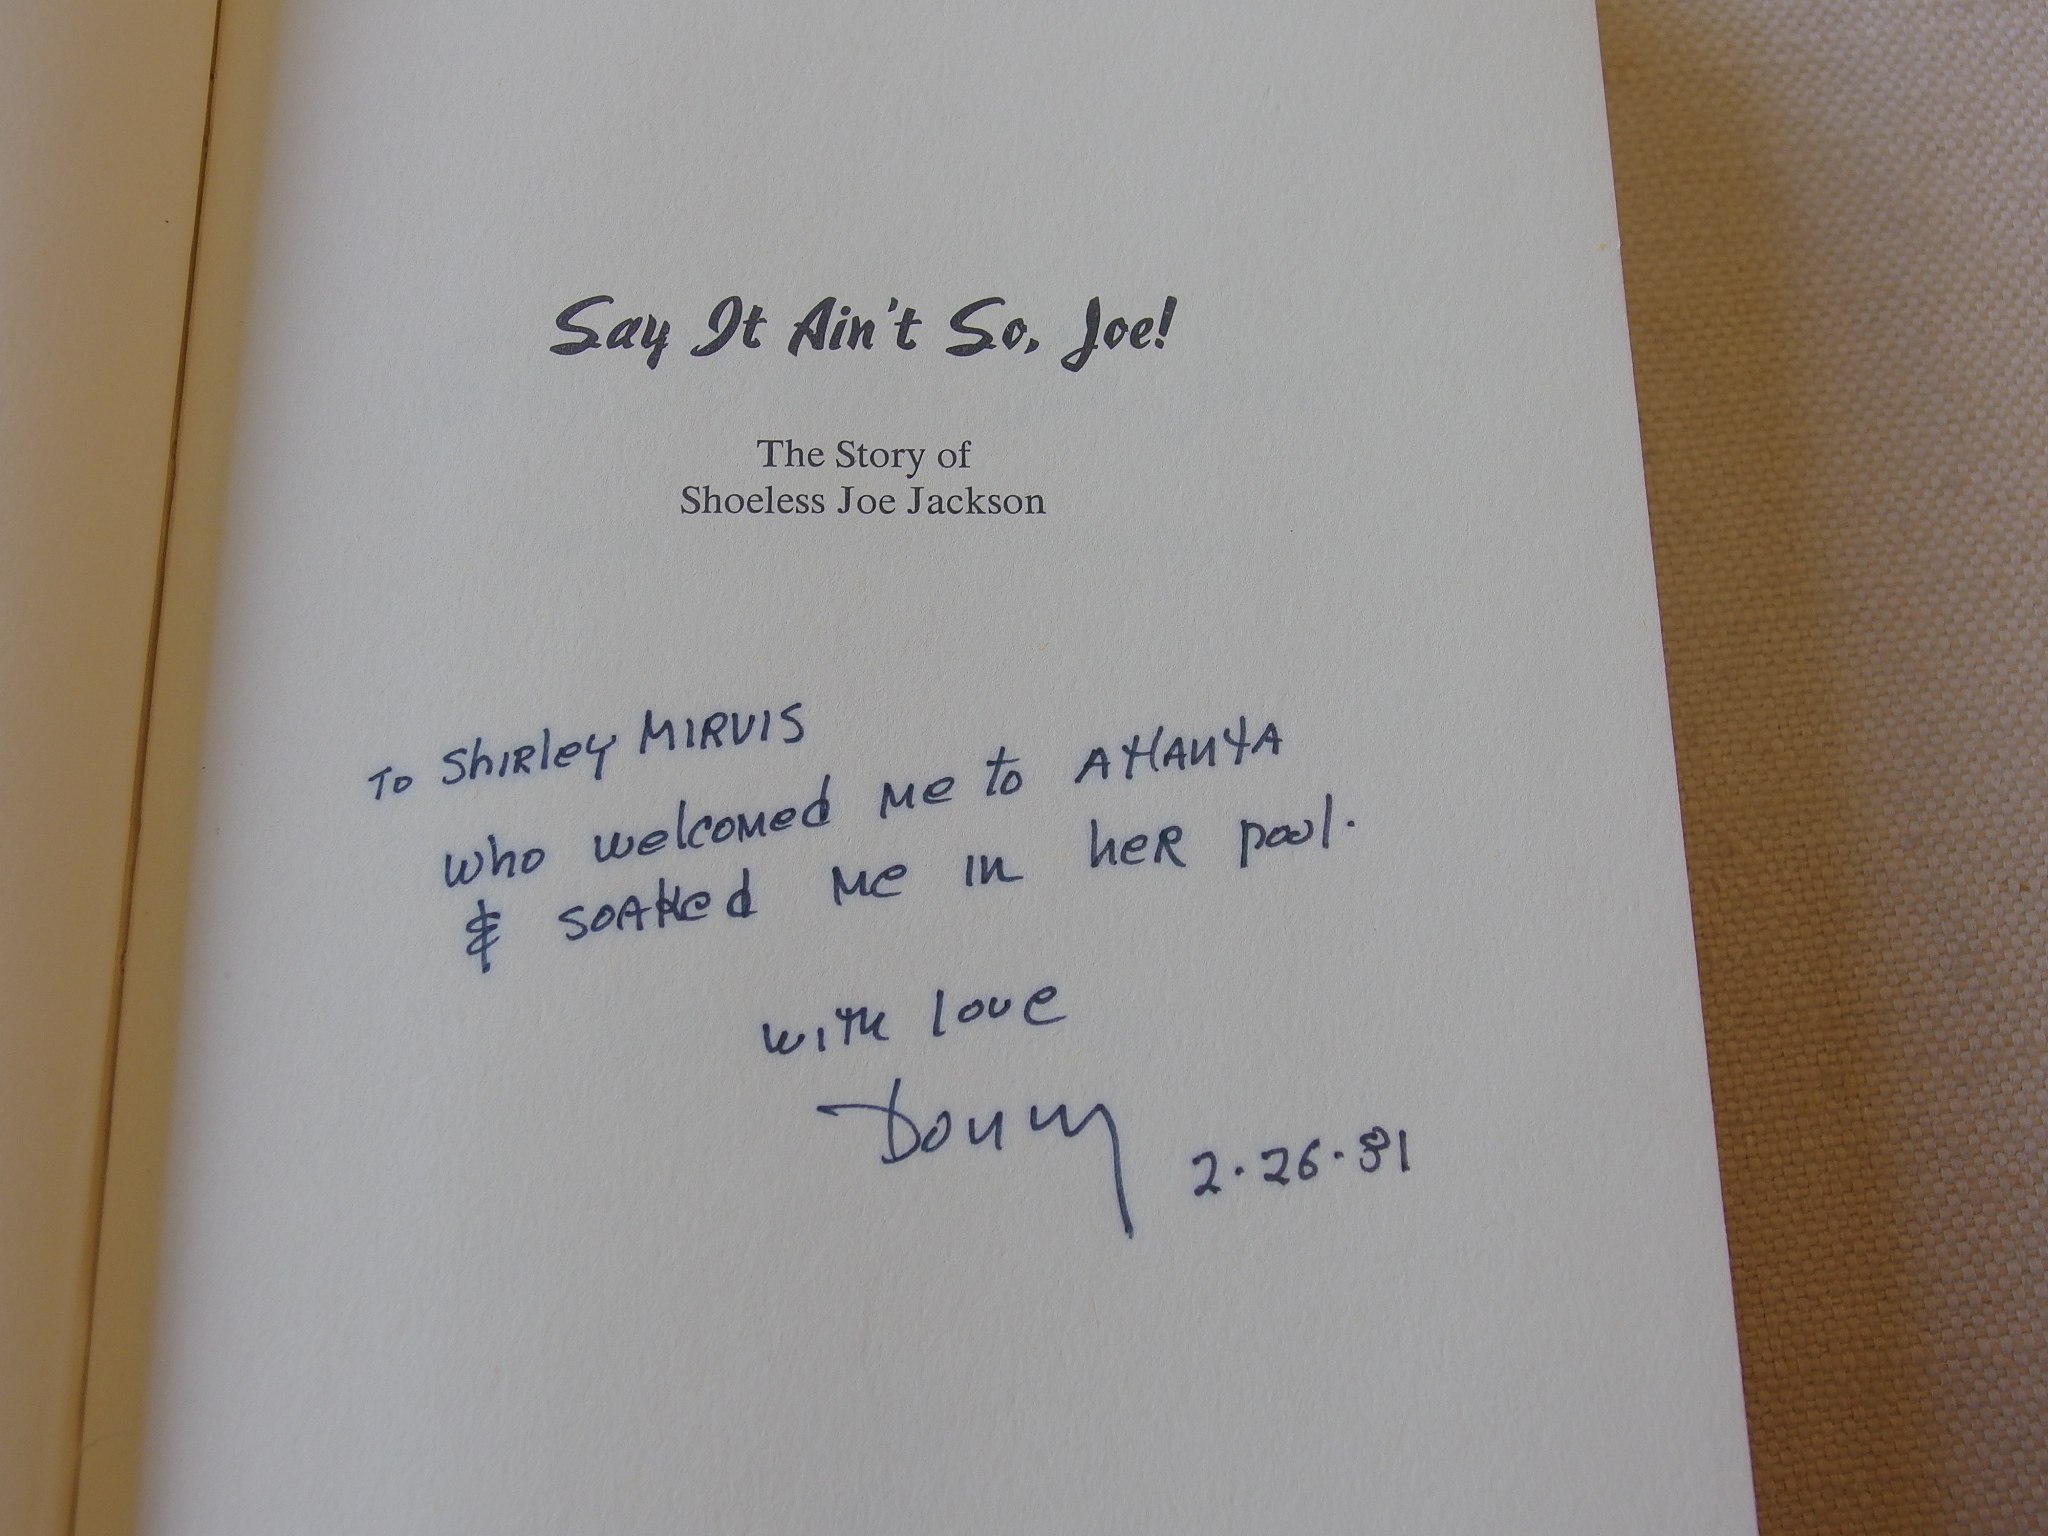 Say It Ain't So, Joe!
The Story of
Shoeless Joe Jackson
To Shirley MIRVIS
who welcomed me to Atlanta
& soaked me in her pool.
with love
Donny
2.26.81